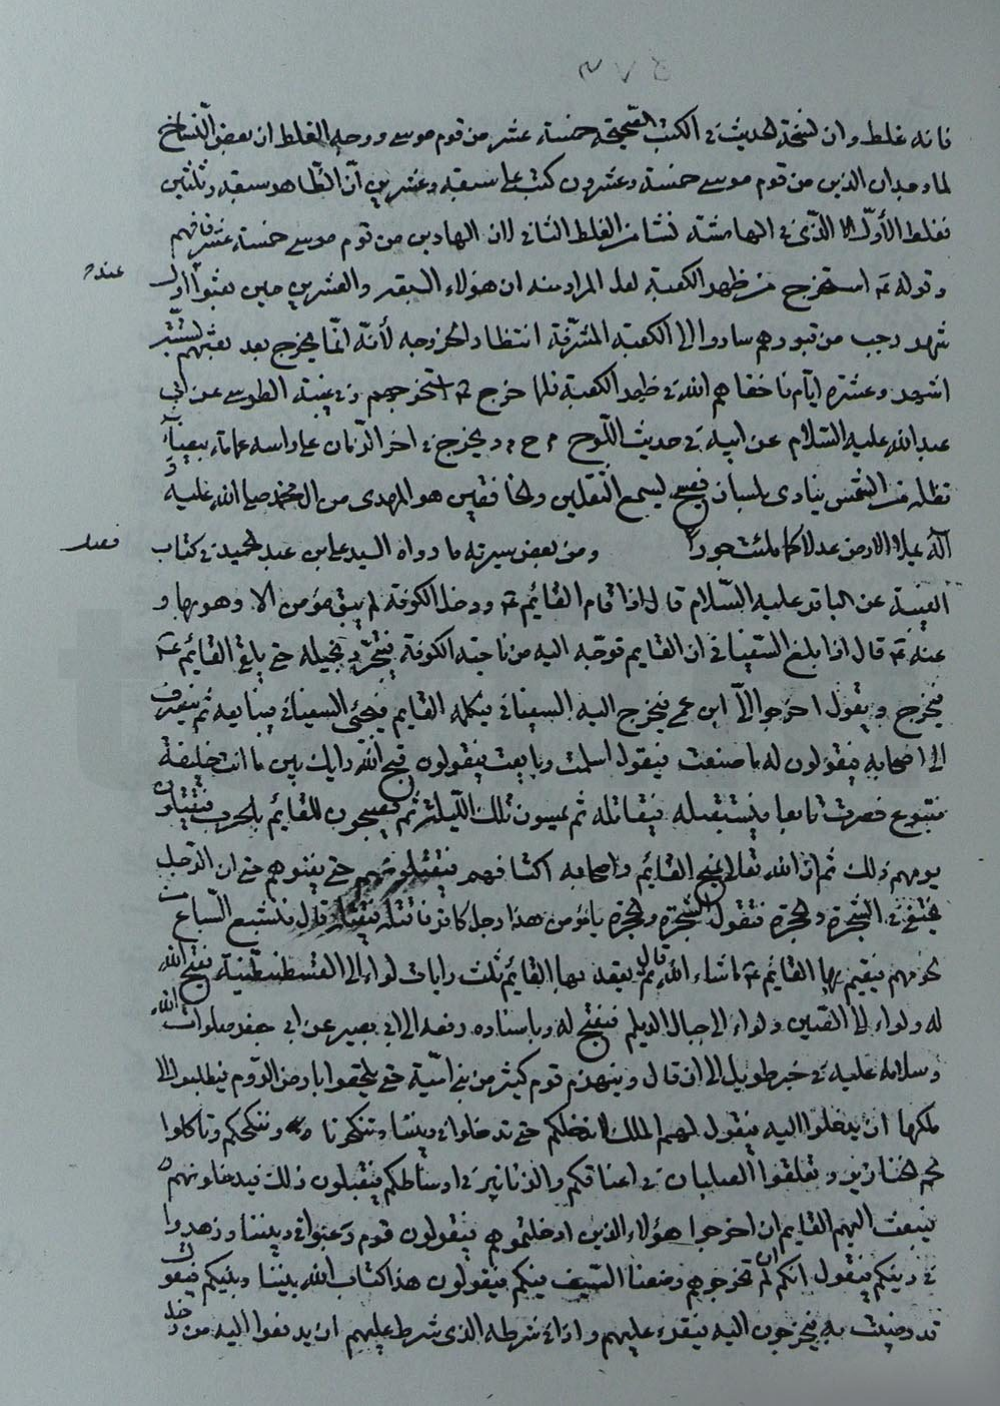 ٣٧٥
فانه غلط وان نسخة الحديث في الكتب الصحيحة خمسة عشر من قوم موسى ووجه الغلط ان بعض النساخ
لما وجد ان الذين من قوم موسى خمسة وعشرون كتب على سبعة وعشرين ان الظاهر سبعة وثلثين
فغلط الأول الذي في الهامش نشا من الغلط الثاني لان الهادين من قوم موسى خمسة عشر فافهم
وقوله ع استخرج من ظهر الكعبة لعل المراد منه ان هؤلاء السبعة والعشرين حين بعثوا اول
عنده
شهر رجب من قبورهم ساروا الى الكعبة المشرفة انتظارا لخروجه لأنه انما يخرج بعد بعثهم بستة
اشهر وعشرة ايام فاخفاهم الله في ظهر الكعبة فلما خرج ع استخرجهم وفي غيبة الطوسي عن ابي
عبد الله عليه السلام عن ابيه في حديث اللوح م ح م د يخرج في اخر الزمان على راسه غمامة بيضاء
تظله من الشمس ينادى بلسان فصيح ليسمع الثقلين والخافقين هو المهدى من ال محمد صلى الله عليه و
آله يملاء الارض عدلا كما ملئت جورا ومن بعض سيرته ما رواه السيد علي ابن عبد الحميد في كتاب
فصل
الغيبة عن الباقر عليه السلام قال اذا قام القائم ع ودخل الكوفة لم يبق مؤمن الا وهو بها و
عنه ع قال اذا بلغ السفياني ان القايم توجه اليه من ناحية الكوفة فيتجرد بخيله حتى يلقى القائم ع
فيخرج ويقول اخرجوا الى ابن عمى فيخرج اليه السفياني فيكلمه القايم فيجئى السفياني فيبايعه ثم ينصرف
الى اصحابه فيقولون له ما صنعت فيقول اسلمت وبايعت فيقولون قبح الله رايك بين ما انت خليفة
متبوع فصرت تابعا فيستقبله فيقاتله ثم يمسون تلك الليلة ثم يصبحون للقائم بالحرب فيقتتلون
يومهم ذلك ثم ان الله تعالى يمنح القائم واصحابه اكتافهم فيقتلونهم حتى يفنوهم حتى ان الرجل
يختفي في الشجرة والحجرة فتقول الشجرة والحجرة يا مؤمن هذا رجل كافر فاقتله فيقتله قال فتشبع السباع من
لحومهم فيقيم بها القائم ع ما شاء الله قال ثم يعقد بها القائم ثلث رايات لواء الى القسطنطينية يفتح الله
له ولواء الى الصين ولواء الى جبال الديلم فيفتح له وباسناده رفعه الى ابي بصير عن ابي جعفر صلوات الله
وسلامه عليه في خبر طويل الى ان قال وينهزم قوم كثير من بني امية حتى يلحقوا بارض الروم فيطلبوا الى
ملكها ان يدخلوا اليه فيقول لهم الملك لا ندخلكم حتى تدخلوا في ديننا وتنكحونا وننكحكم وتاكلوا
لحم الخنازير وتعلقوا الصلبان في اعناقكم والزنانير في اوساطكم فيقبلون ذلك فيدخلونهم
فيبعث اليهم القايم ان اخرجوا هؤلاء الذين ادخلتموهم فيقولون قوم رغبوا في ديننا وزهدوا
في دينكم فيقول انكم ان لم تخرجوهم وضعنا السيف فيكم فيقولون هذا كتاب الله بيننا وبينكم فيقول
قد رضيت به فيخرجون اليه فيقرء عليهم واذا في شرطه الذى شرط عليهم ان يدفعوا اليه من دخل